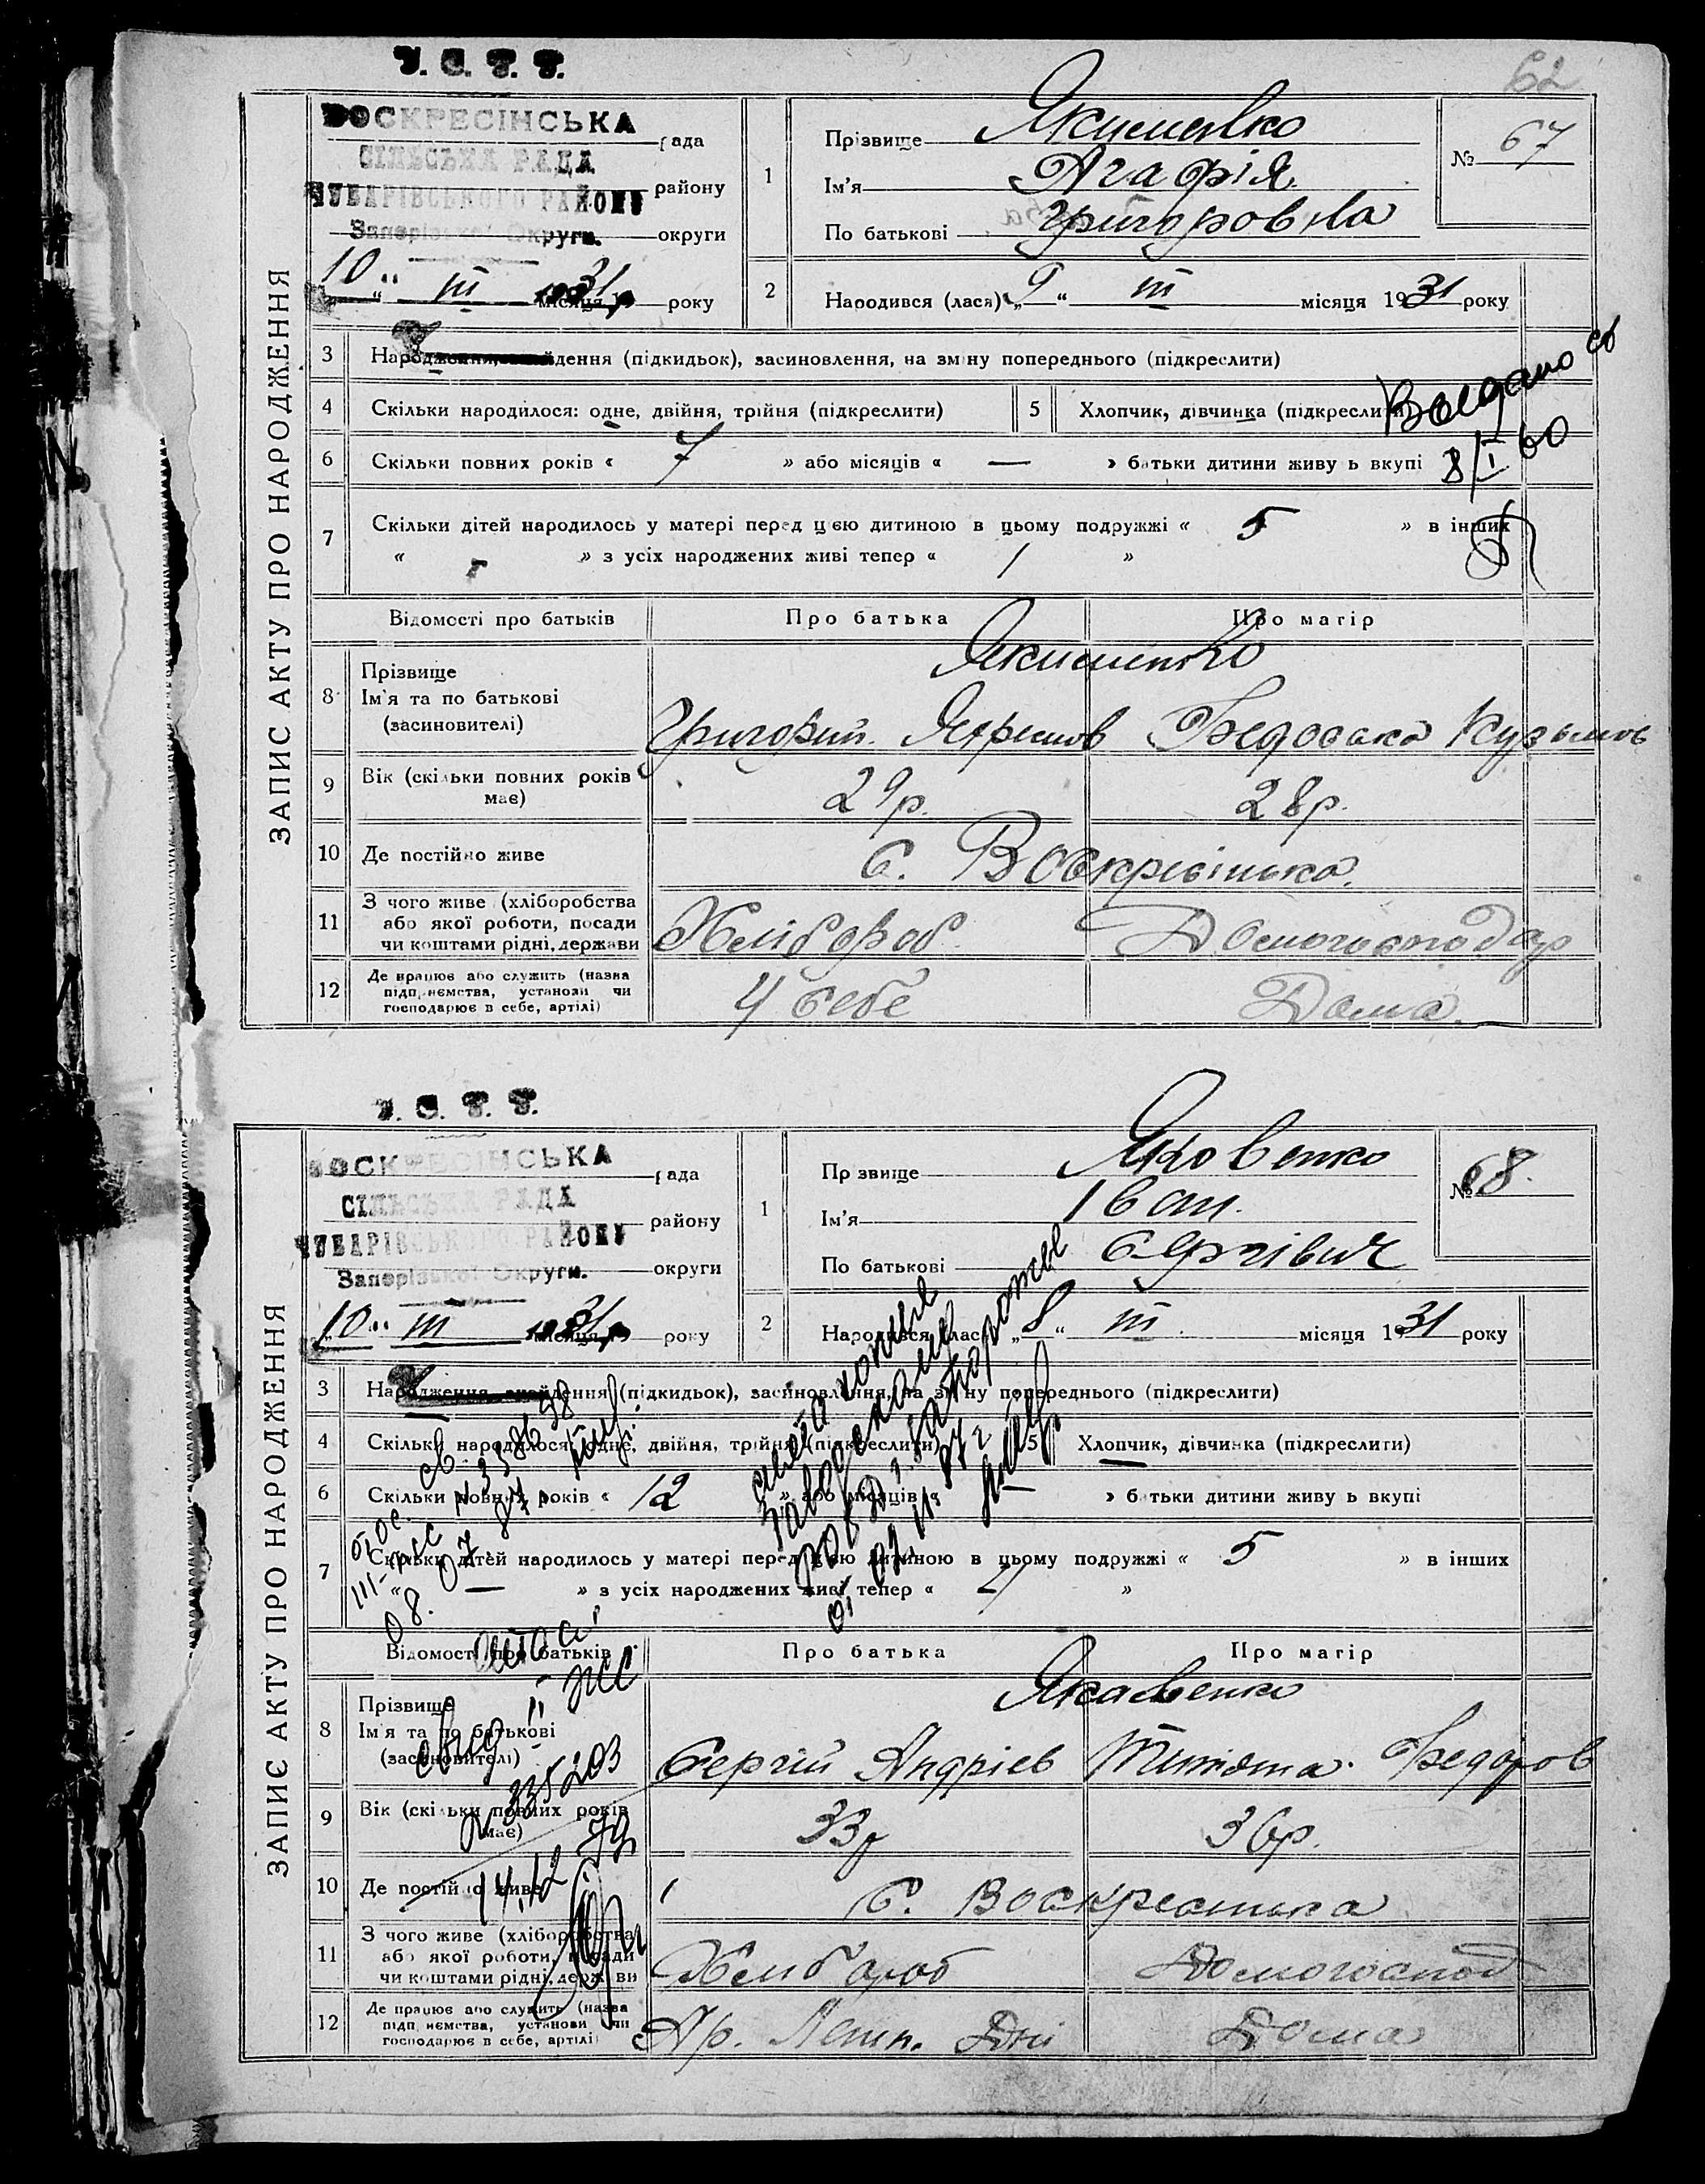 У. С. Р. Р.
62
ЗАПИС АКТУ ПРО НАРОДЖЕННЯ
ВОСКРЕСІНСЬКА рада
СІЛЬСЬКА РАДА
ЧУБАРІВСЬКОГО РАЙОНУ району
Запорізької Округи. округи
10 " III місяця 1931 року
1
Прізвище Якименко
Ім'я Агафія
По батькові Григоровна
№ 67
2
Народився (лася) „9 “ III місяця 1931 року
3 Народження, знайдення (підкидьок), засиновлення, на зміну попереднього (підкреслити)
4 Скільки народилося: одне, двійня, трійня (підкреслити)
5 Хлопчик, дівчинка (підкреслити)
Выдано св
8/I 60
6 Скільки повних років « 7 » або місяців « — » батьки дитини живуть вкупі
7 Скільки дітей народилось у матері перед цією дитиною в цьому подружжі « 5 » в інших
« » з усіх народжених живі тепер « 1 »
Відомості про батьків Про батька Про матір
8 Прізвище
Ім'я та по батькові
(засиновителі)
Якименко
Григорий Яфремов Федоська Кузьмов
9 Вік (скільки повних років має) 29р. 28р.
10 Де постійно живе с. Воскресінька.
11 З чого живе (хліборобства
або якої роботи, посади
чи коштами рідні, держави
Хлібороб Домогосподар
12 Де працює або служить (назва
підприємства, установи чи
господарює в себе, артілі)
У себе Дома.
У. С. Р. Р.
ЗАПИС АКТУ ПРО НАРОДЖЕННЯ
ВОСКРЕСІНСЬКА рада
СІЛЬСЬКА РАДА
ЧУБАРІВСЬКОГО РАЙОНУ району
Запорізької Округи. округи
10 " III місяця 1931 року
1
Прізвище Яковенко
Ім'я Іван.
По батькові Сергієвич
№ 68.
2
Народився (лася) „8 “ III місяця 1931 року
3 Народження, знайдення (підкидьок), засиновлення, на зміну попереднього (підкреслити)
4 Скільки народилося: одне, двійня, трійня (підкреслити)
5 Хлопчик, дівчинка (підкреслити)
6 Скільки повних років « 12 » або місяців « » батьки дитини живуть вкупі
7 Скільки дітей народилось у матері перед цією дитиною в цьому подружжі « 5 » в інших
« — » з усіх народжених живі тепер « »
08. 07 87
Відомості про батьків Про батька Про матір
8 Прізвище
Ім'я та по батькові
(засиновителі)
Яковенко
Сергій Андрієв Федоров
№ 335203
9 Вік (скільки повних років має) 33р 36р.
14.12
10 Де постійно живе с. Воскресинька
11 З чого живе (хліборобства
або якої роботи, посади
чи коштами рідні, держави
Хлибороб Домогоспод
12 Де працює або служить (назва
підприємства, установи чи
господарює в себе, артілі)
Ар. Дома